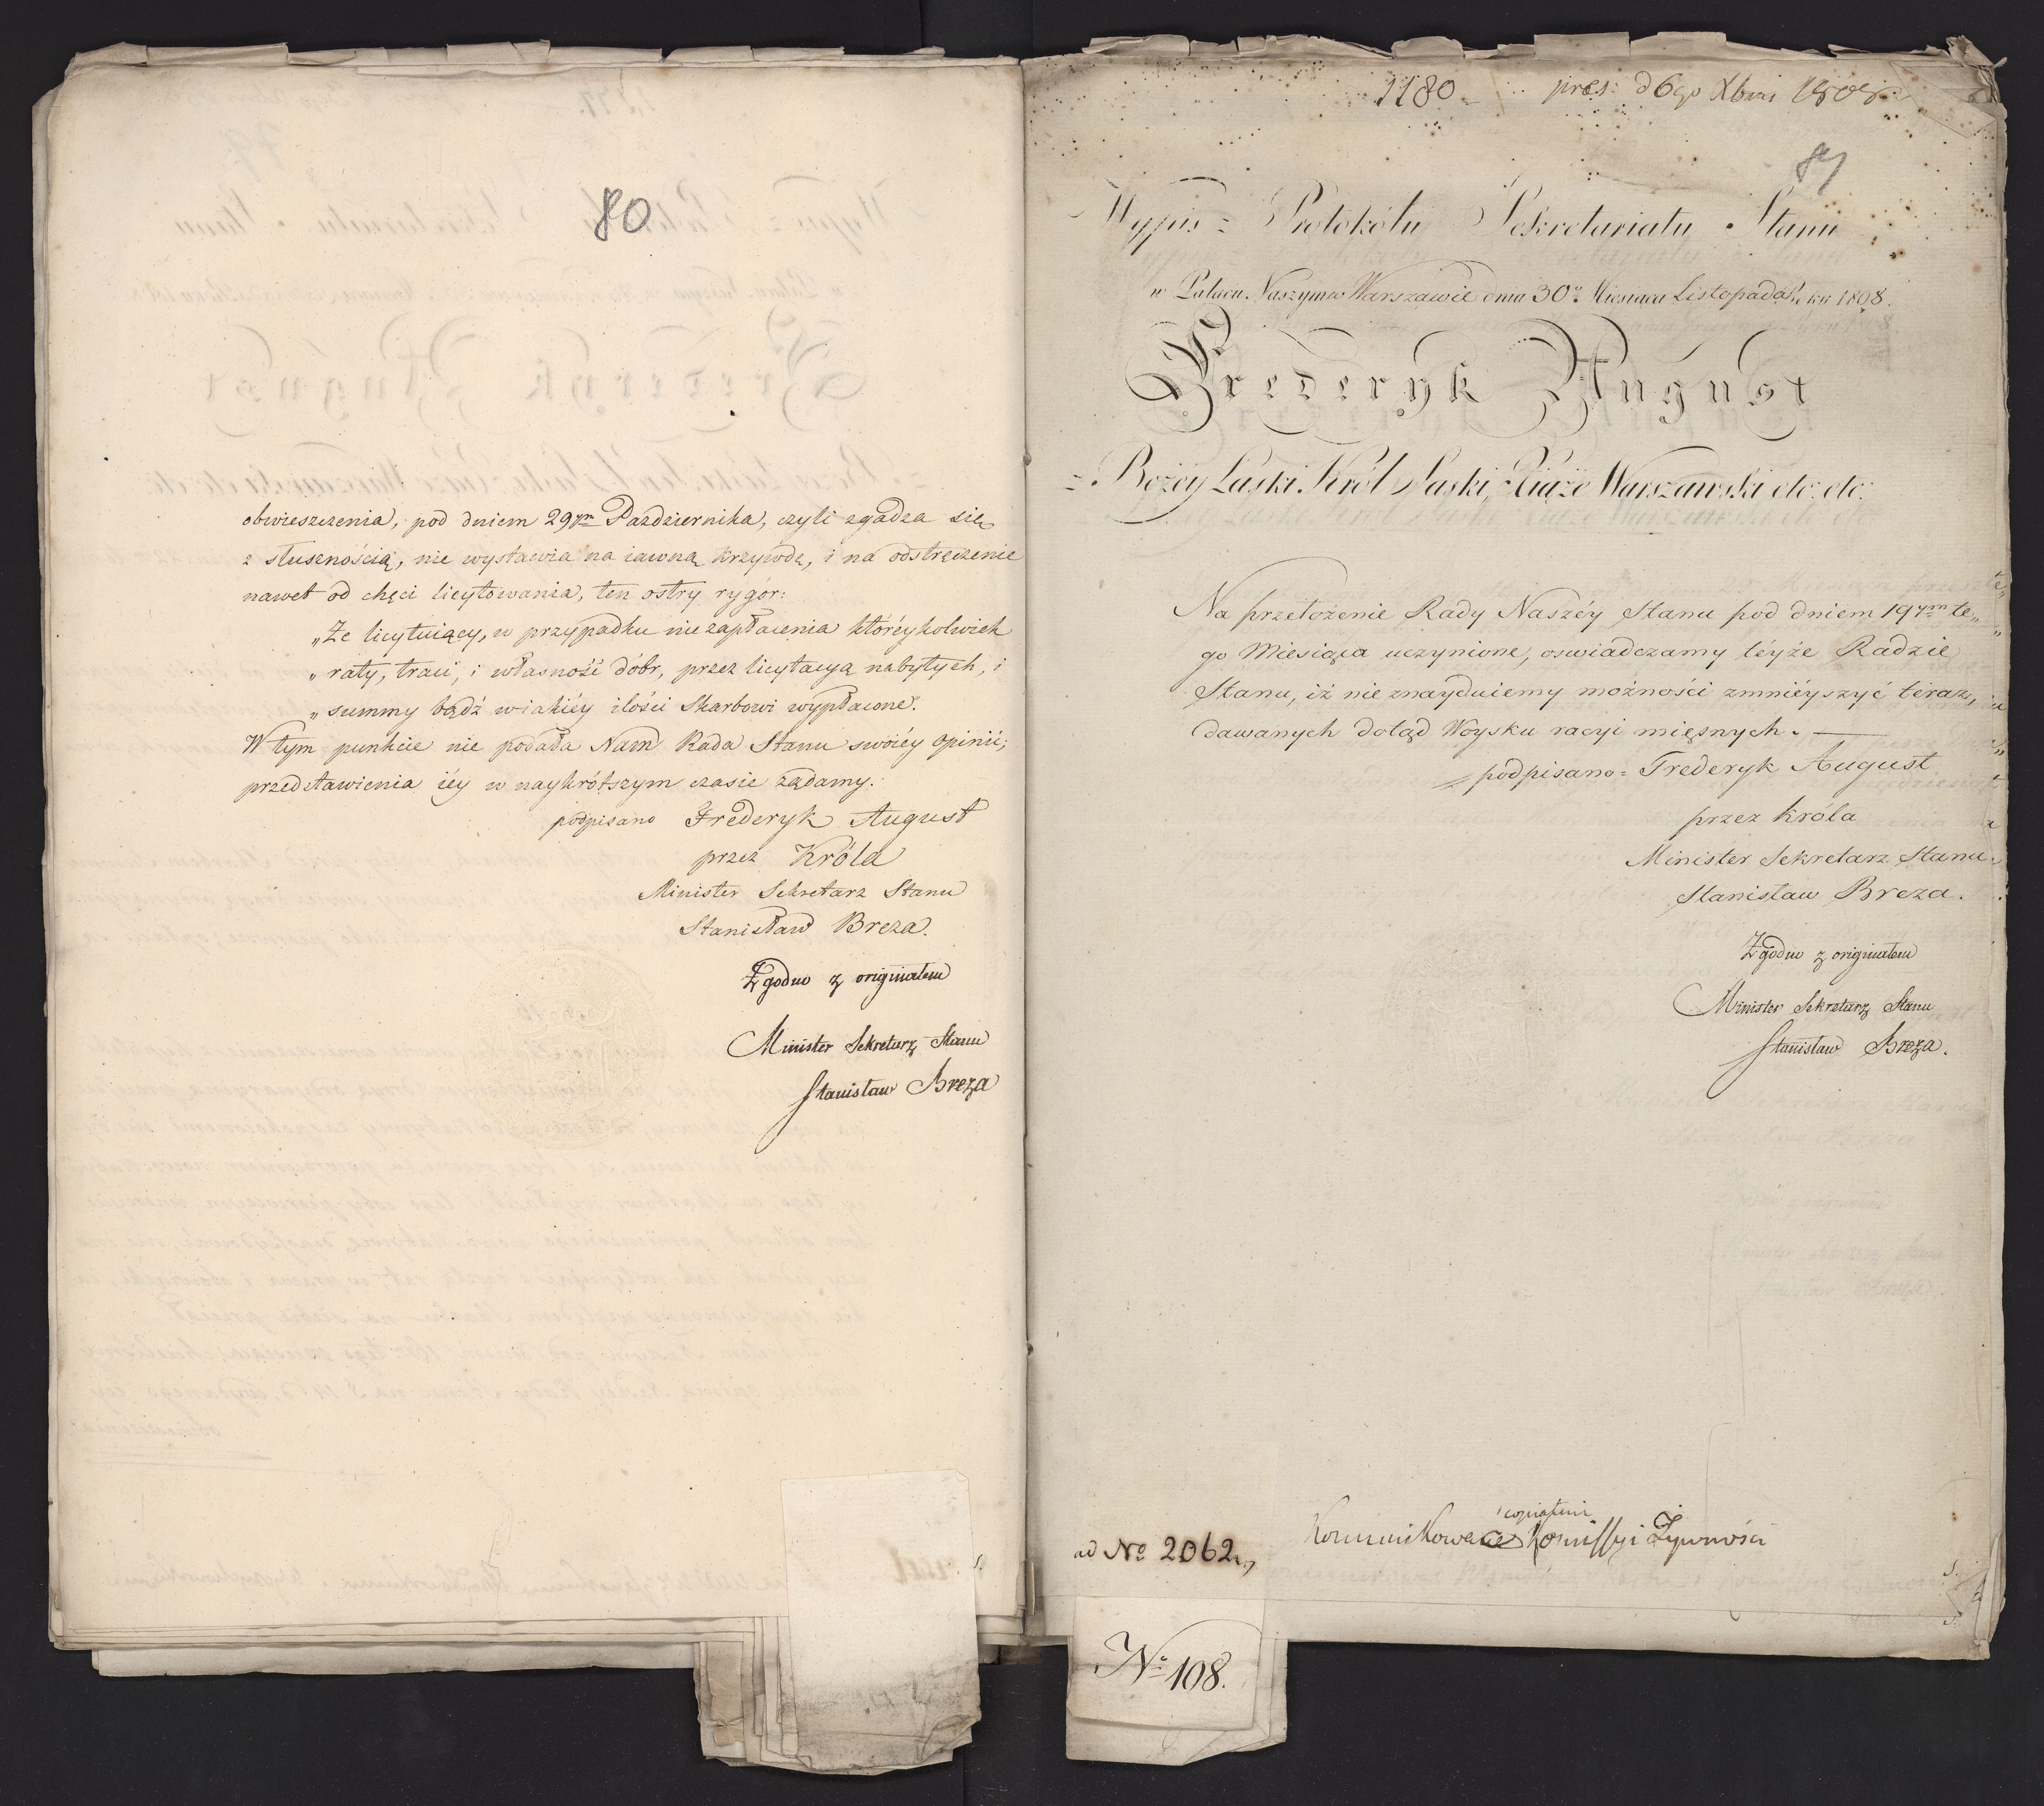 80
obwieszczenia, pod dniem 29ym Pazdziernika, czyli zgadza się
z słusznością, nie wystawia na iawną krzywdę, i na odstręczenie
nawet od chęci licytowania, ten ostry rygor:
„Ze licytuiący, w przypadku niezapłacenia któréykolwiek
„raty, traci, i własność dóbr, przez licytacyą nabytych, i
„summy bądź w iakiéy ilości Skarbowi wypłacone.
W tym punkcie nie podała Nam Rada Stanu swoiéy opinii;
przedstawienia iéy w naykrótszym czasie żądamy.
podpisano Frederyk August
przez Króla
Minister Sekretarz Stanu
Stanisław Breza.
Zgodno z originałem
Minister Sekretarz Stanu
Stanisław Breza
1180 pres: d 6go Xbris 1808
81
Wypis z Protokółu Sekretariatu Stanu
w Pałacu Naszym w Warszawie dnia 30o Miesiąca Listopada Roku 1808.
Frederyk August
z Bożéy Łaski Król Saski, Xiąże Warszawski etc: etc:
Na przełożenie Rady Naszéy Stanu pod dniem 19ym te„
go Miesiąca uczynione, oswiadczamy téyże Radzie
Stanu, iż nie znayduiemy możności zmniéyszyć teraz,
dawanych dotąd Woysku racyi mięsnych.
podpisano = Frederyk August
przez króla
Minister Sekretarz Stanu
Stanisław Breza.
Zgodno z originałem
Minister Sekretarz Stanu
Stanisław Breza.
ad No 2062
Kommissyi Żywności
No 108.